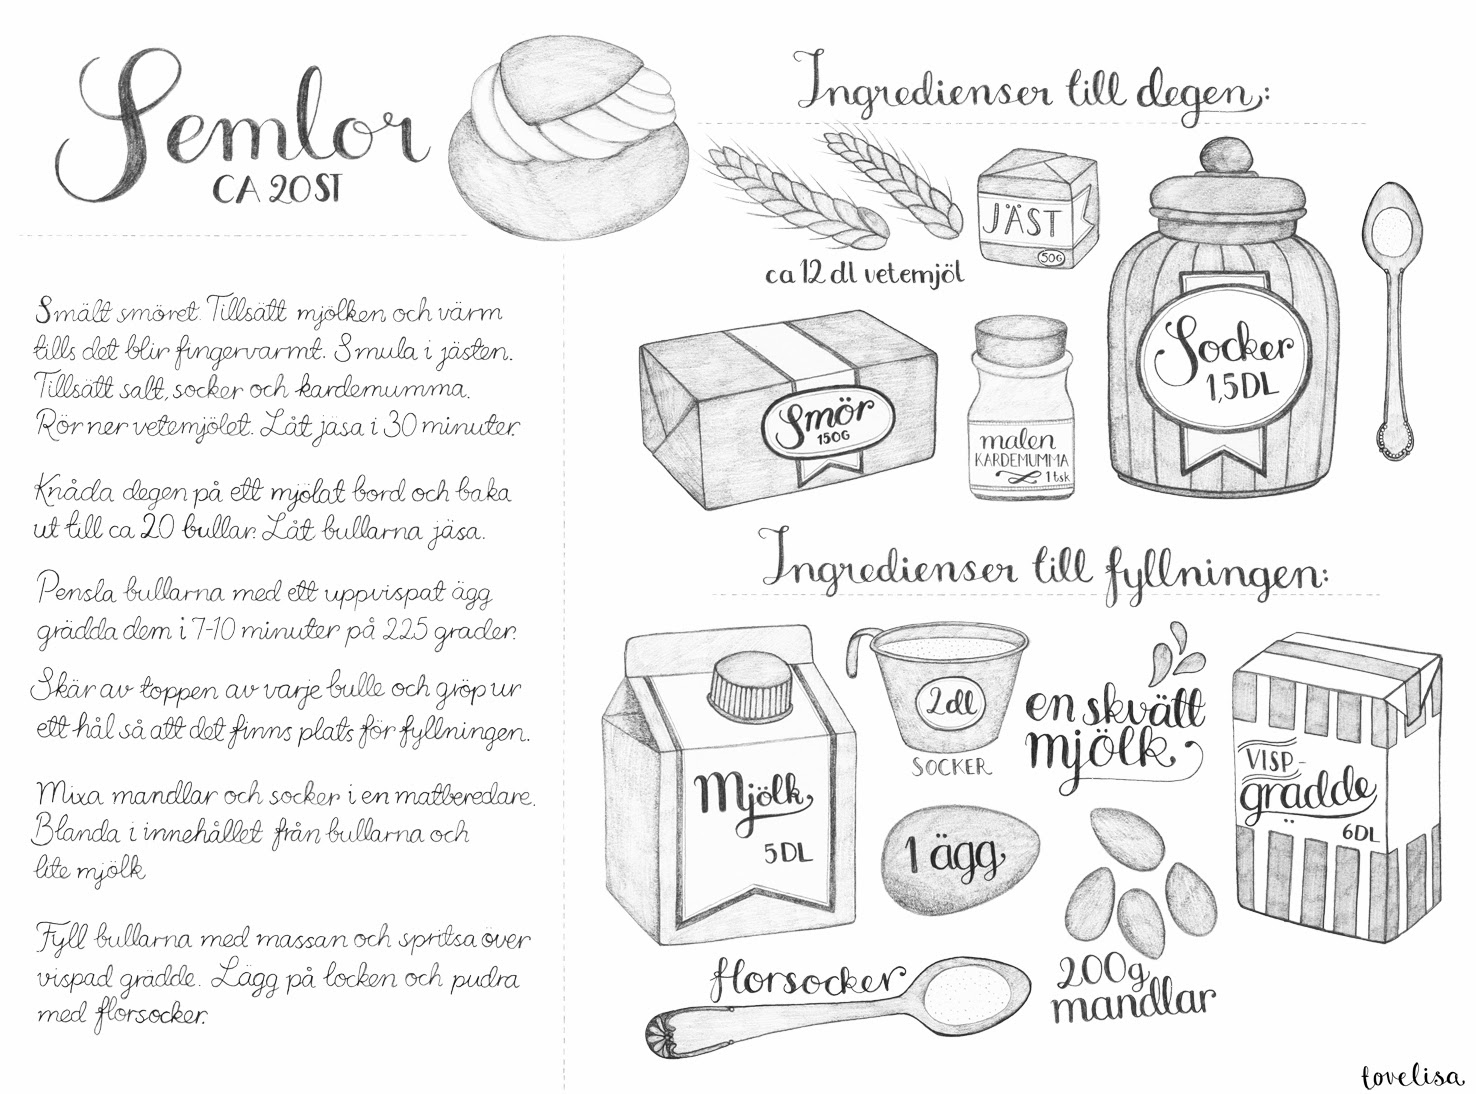 Semlor
CA 20 ST
Smält smöret. Tillsätt mjölken och värm
tills det blir fingervarmt. Smula i jästen.
Tillsätt salt, socker och kardemumma.
Rör ner vetemjölet. Låt jäsa i 30 minuter.
Knåda degen på ett mjölat bord och baka
ut till ca 20 bullar. Låt bullarna jäsa.
Pensla bullarna med ett uppvispat ägg
grädda dem i 7-10 minuter på 225 grader.
Skär av toppen av varje bulle och gröp ur
ett hål så att det finns plats för fyllningen.
Mixa mandlar och socker i en matberedare.
Blanda i innehållet från bullarna och
lite mjölk
Fyll bullarna med massan och spritsa över
vispad grädde. Lägg på locken och pudra
med florsocker.
Ingredienser till degen:
ca 12 dl vetemjöl
JÄST
50G
Smör
150G
malen
KARDEMUMMA
1 tsk
Socker
1,5 DL
Ingredienser till fyllningen:
Mjölk
5 DL
2 dl
SOCKER
en skvätt
mjölk
VISP-
grädde
6 DL
1 ägg
200g
mandlar
florsocker
tovelisa